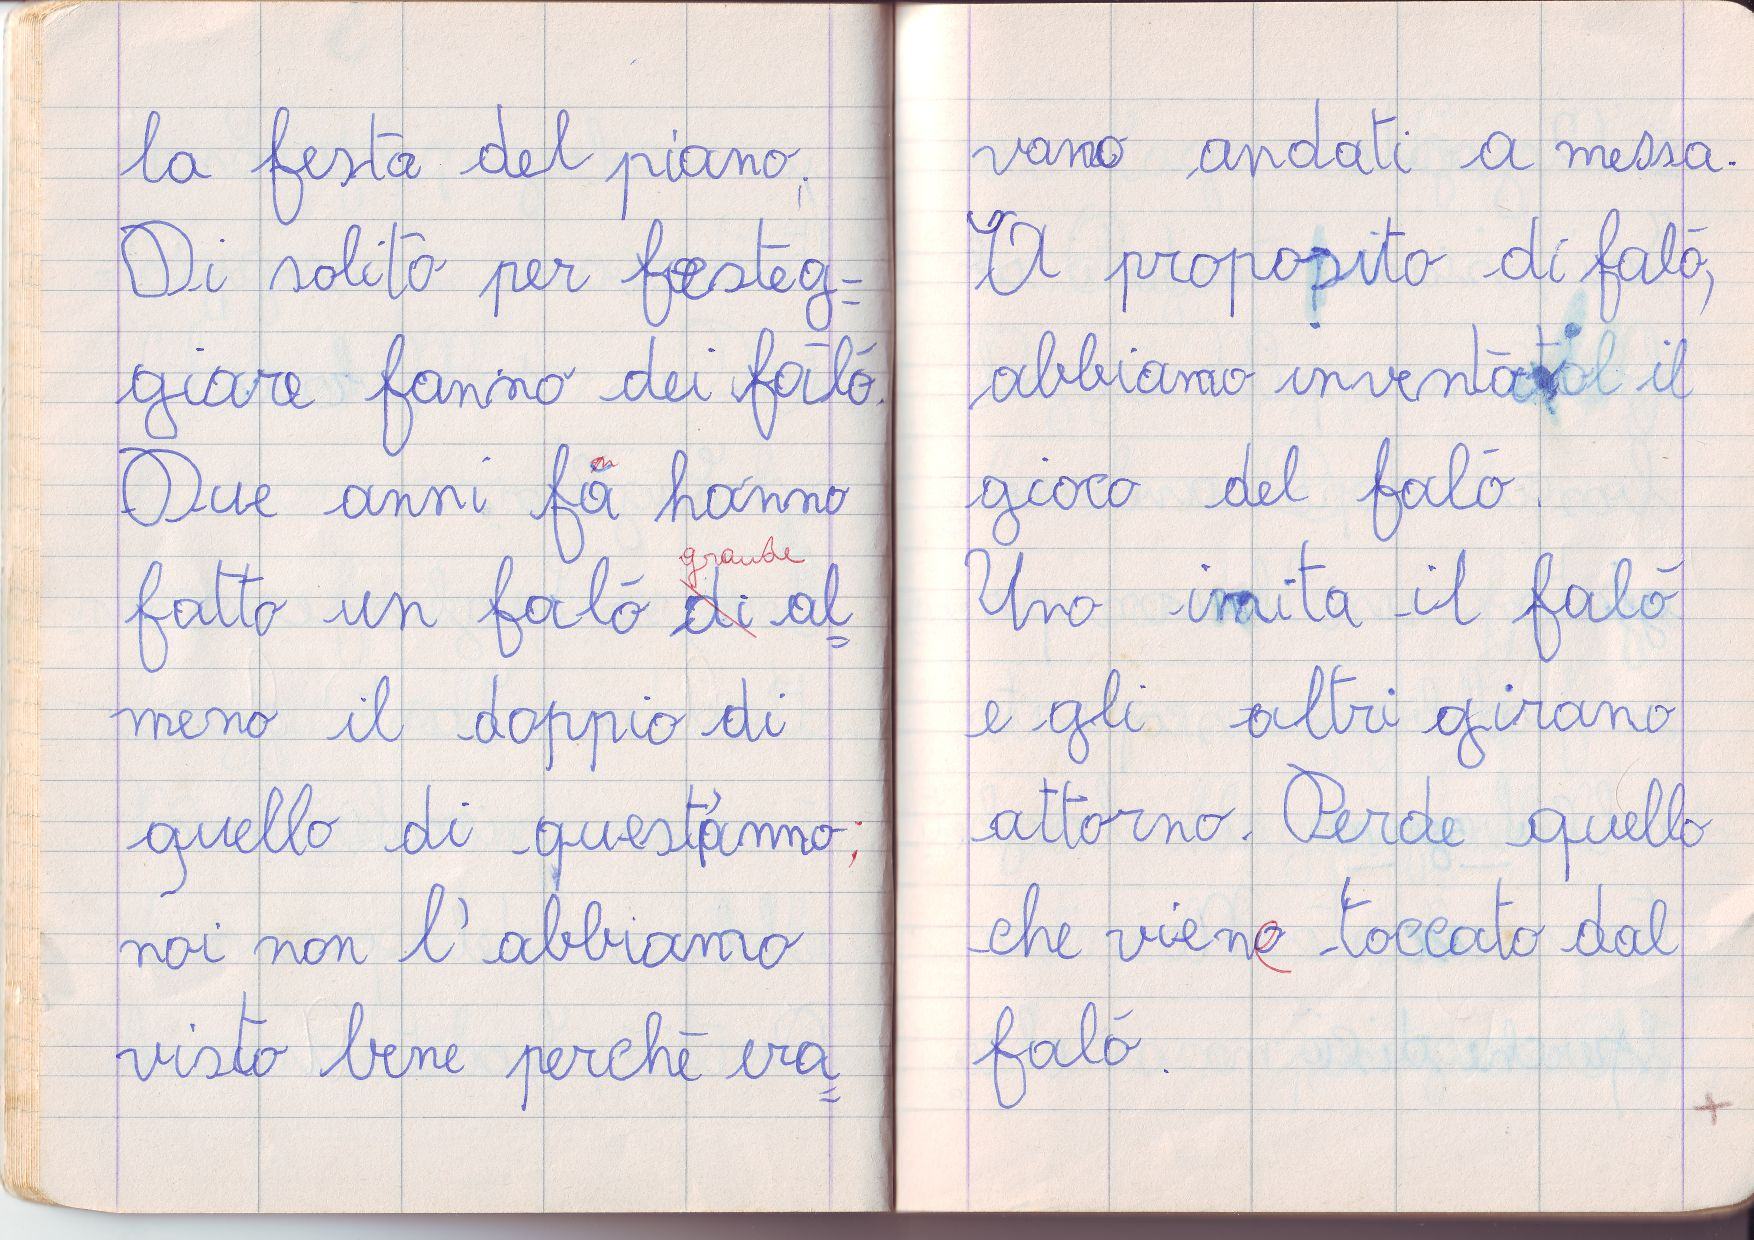 la festa del piano.
Di solito per festeg=
giare fanno dei falò.
Due anni fa hanno
grande
fatto un falò di al=
meno il doppio di
quello di quest'anno;
noi non l'abbiamo
visto bene perchè era=
vano andati a messa.
A proposito di falò,
abbiamo il
gioco del falò.
Uno imita il falò
e gli altri girano
attorno. Perde quello
che viene toccato dal
falò.
+